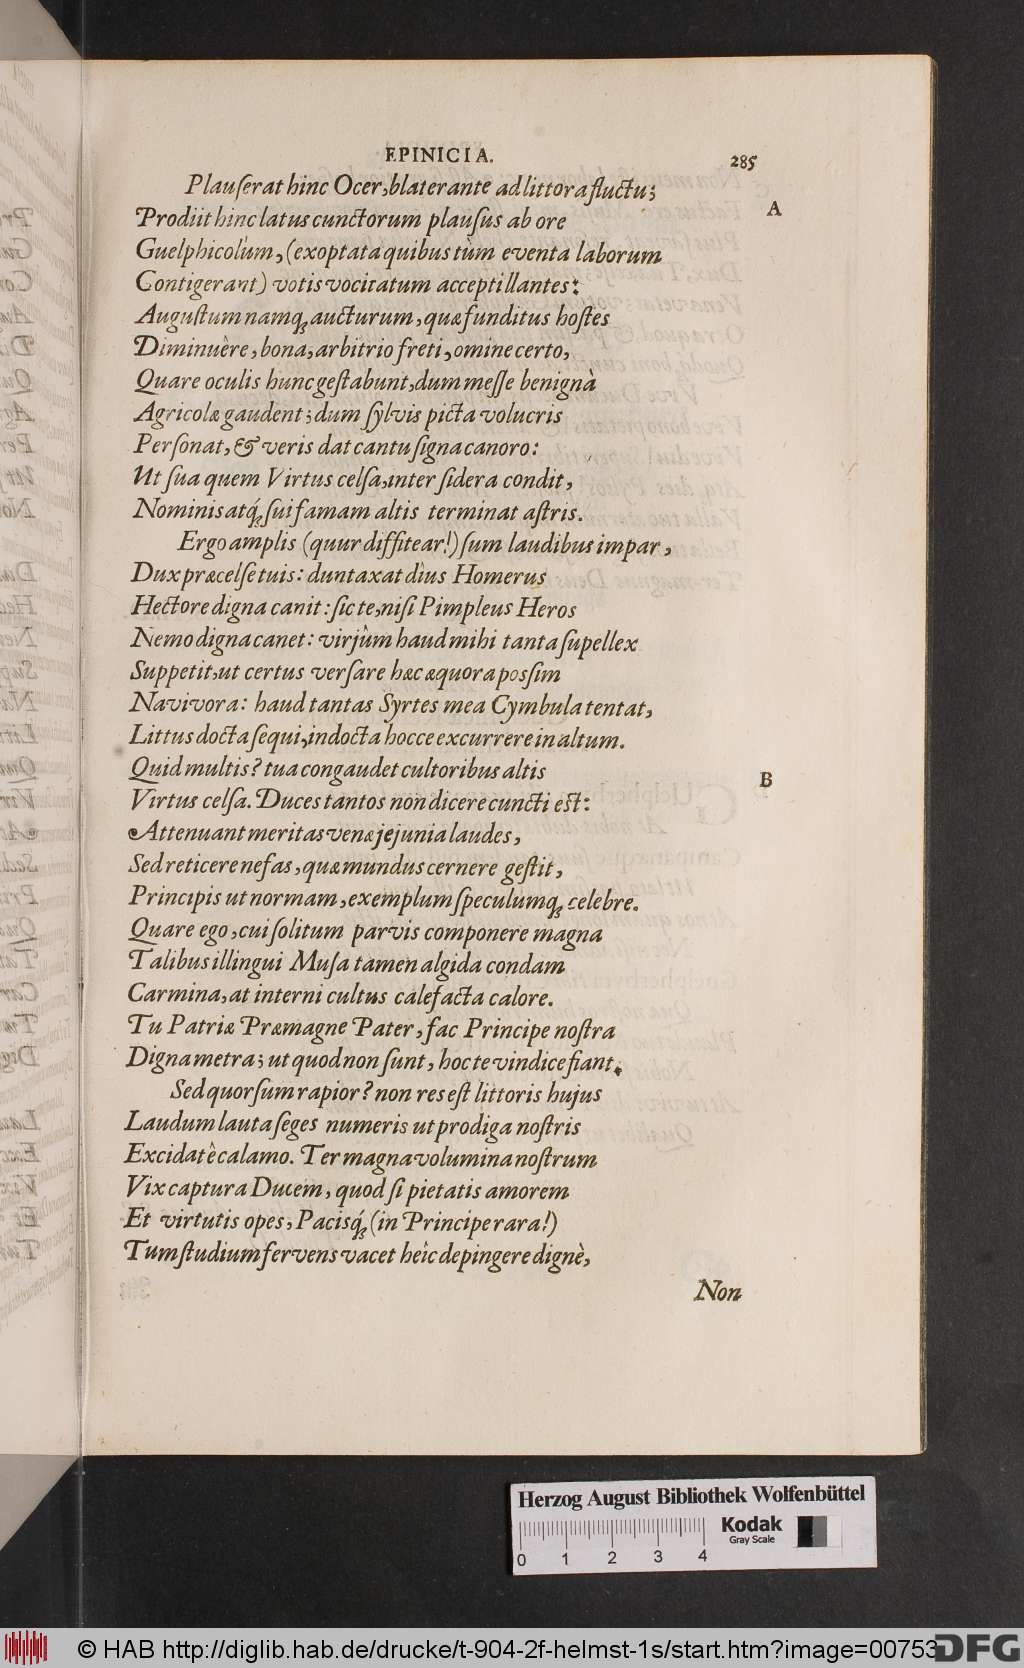 EPINICIA. 285
Plauſerat hinc Ocer, blaterante ad littora fluctu;
A
Prodiit hinc latus cunctorum plauſus ab ore
Guelphicolûm, (exoptata quibus tùm eventa laborum
Contigerant) votis vocitatum acceptillantes:
Auguſtum namq; aucturum, quæ funditus hoſtes
Diminuêre, bona, arbitrio freti, omine certo,
Quare oculis hunc geſtabunt, dum meſſe benignâ
Agricolæ gaudent; dum ſylvis picta volucris
Perſonat, & veris dat cantu ſigna canoro:
Ut ſua quem Virtus celſa, inter ſidera condit,
Nominis atq́; ſui famam altis terminat aſtris.
Ergo amplis (quur diffitear!) ſum laudibus impar,
Dux præcelſe tuis: duntaxat dîus Homerus
Hectore digna canit: ſic te, niſi Pimpleus Heros
Nemo digna canet: virjûm haud mihi tanta ſupellex
Suppetit, ut certus verſare hæc æquora poſſim
Navivora: haud tantas Syrtes mea Cymbula tentat,
Littus docta ſequi, indocta hocce excurrere in altum.
Quid multis? tua congaudet cultoribus altis
B
Virtus celſa. Duces tantos non dicere cuncti eſt:
Attenuant meritas venæ jejunia laudes,
Sed reticere nefas, quæ mundus cernere geſtit,
Principis ut normam, exemplum ſpeculumq; celebre.
Quare ego, cui ſolitum parvis componere magna
Talibus illingui Muſa tamen algida condam
Carmina, at interni cultus calefacta calore.
Tu Patriæ Præmagne Pater, fac Principe noſtra
Digna metra; ut quod non ſunt, hoc te vindice fiant.
Sed quorſum rapior? non res eſt littoris hujus
Laudum lauta ſeges numeris ut prodiga noſtris
Excidat è calamo. Ter magna volumina noſtrum
Vix captura Ducem, quod ſi pietatis amorem
Et virtutis opes, Pacisq́; (in Principe rara!)
Tum ſtudium fervens vacet heîc depingere dignè,
Non
Herzog August Bibliothek Wolfenbüttel
0 1 2 3 4
Kodak
Gray Scale
© HAB http://diglib.hab.de/drucke/t-904-2f-helmst-1s/start.htm?image=00753
DFG